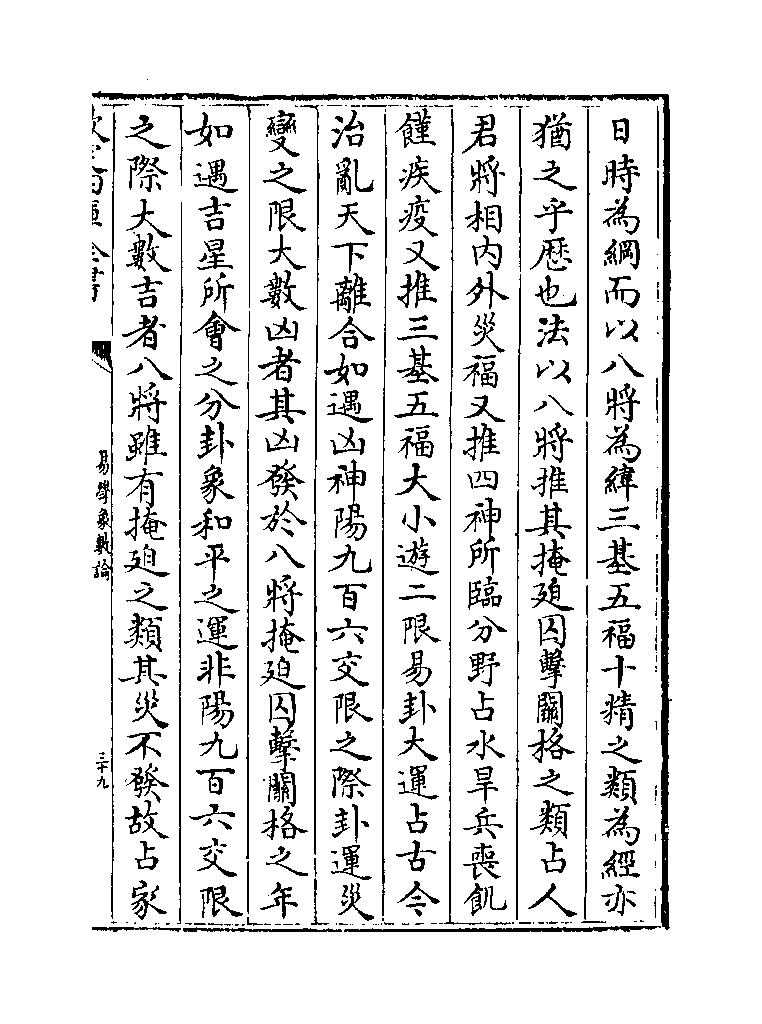 日時為綱而以八將為緯三基五福十精之類為經亦
猶之乎歴也法以八將推其掩廹囚擊關格之類占人
君將相内外災福又推四神所臨分野占水旱兵喪飢
饉疾疫又推三基五福大小遊二限易卦大運占古今
治亂天下離合如遇凶神陽九百六交限之際卦運災
變之限大數凶者其凶發於八將掩廹囚擊關格之年
如遇吉星所會之分卦象和平之運非陽九百六交限
之際大數吉者八將雖有掩廹之類其災不發故占家
易學象數論
三十九